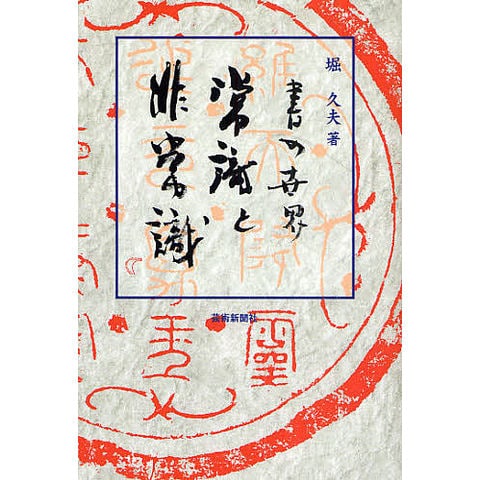 堀 久夫 著
書の世界
常識と
非常識
芸術新聞社